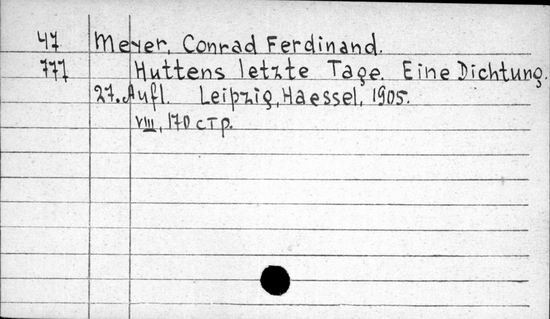 47 Meyer, Conrad Ferdinand.
777 Huttens letzte Tage. Eine Dichtung.
27. Aufl. Leipzig, Haessel, 1905.
VIII, 170 стр.